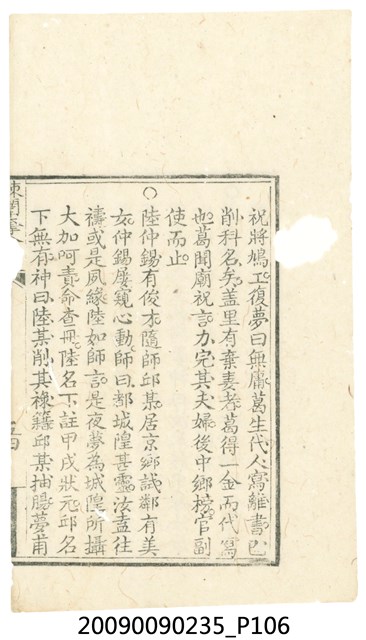 祝將鳩工復夢曰無庸葛生代人寫離書已
削科名矣蓋里有棄妻者葛得一金而代寫
也葛聞廟祝言力完其夫婦後中鄉榜官副
使而止
○陸仲錫有俊才隨師邱某居京鄉試鄰有美
女仲錫屢窺心動師曰都城隍甚靈汝盍往
禱或是夙緣陸如師言是夜夢為城隍所攝
大加呵責命查冊陸名下註甲戌狀元邱名
下無有神曰陸某削其祿籍邱某抽腸夢甫
20090090235_P106